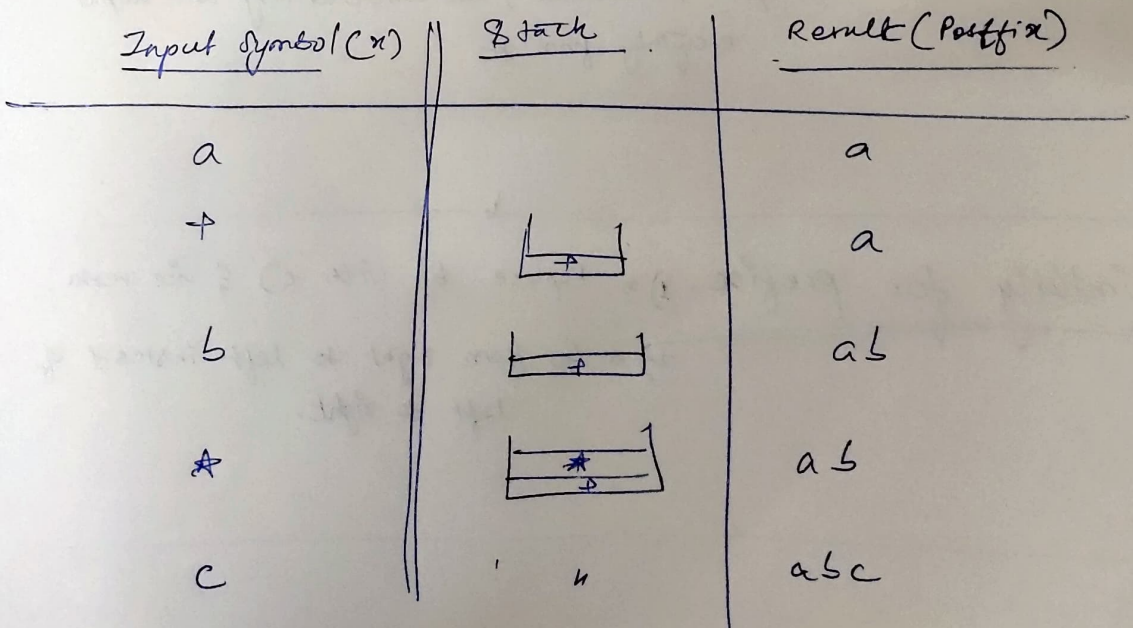 Input Symbol(x) Stack Result (Postfix)
a a
+ + a
b + ab
* * ab
+
c " abc